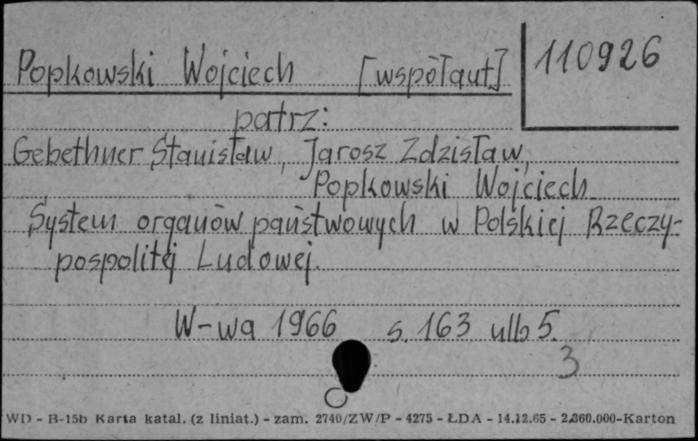 Popkowski Wojciech [współaut] 110926
patrz:
Gebethner Stanisław, Jarosz Zdzisław,
Popkowski Wojciech
System organów państwowych w Polskiej Rzeczy-
pospolitej Ludowej.
W-wa 1966 s. 163 ulb 5.
3
WD - B-15b Karta katal. (z liniat.) - zam. 2740/ZW/P - 4275 - ŁDA - 14.12.65 - 2.360.000-Karton